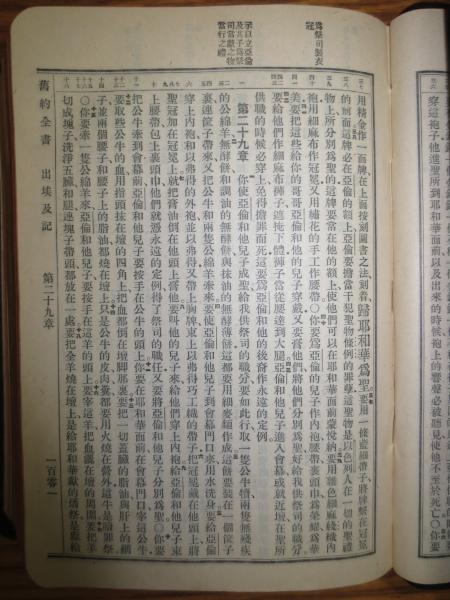 爲祭司製衣冠
示以立亞倫及其子爲祭司當獻之物當行之禮
用精金作一面牌在上面按刻圖書之法刻着歸耶和華爲聖要用一條藍細帶子將牌繫在冠冕
的前面這牌必在亞倫的額上亞倫要擔當干犯聖物條例的罪孽這聖物是以色列人在一切的聖禮
物上所分別爲聖的這牌要常在他的額上使他們可以在耶和華面前蒙悅納要用雜色細麻線織內
袍用細麻布作冠冕又用繡花的手工作腰帶○你要爲亞倫的兒子作內袍腰帶裹頭巾爲榮耀爲華
美要把這些給你的哥哥亞倫和他的兒子穿戴又要膏他們將他們分別爲聖好給我供祭司的職分
要給他們作細麻布褲子遮掩下體褲子當從腰達到大腿亞倫和他兒子進入會幕或就近壇在聖所
供職的時候必穿上免得擔罪而死這要爲亞倫和他的後裔作永遠的定例
第二十九章 你使亞倫和他兒子成聖給我供祭司的職分要如此行取一隻公牛犢兩隻無殘疾
的公綿羊無酵餅和調油的無酵餅與抹油的無酵薄餅這都要用細麥麵作成這餅要裝在一個筐子
裏連筐子帶來又把公牛和兩隻公綿羊牽來要使亞倫和他兒子到會幕門口來用水洗身要給亞倫
穿上內袍和以弗得的外袍並以弗得又帶上胸牌束上以弗得巧工織的帶子把冠冕戴在他頭上將
聖冠加在冠冕上就把膏油倒在他頭上膏他要叫他的兒子來給他們穿上內袍給亞倫和他兒子束
上腰帶包上裹頭巾他們就憑永遠的定例得了祭司的職任又要將亞倫和他兒子分別爲聖○你要
把公牛牽到會幕前亞倫和他兒子要按手在公牛的頭上你要在耶和華面前在會幕門口宰這公牛
要取些公牛的血用指頭抹在壇的四角上把血都倒在壇脚那裏要把一切蓋臟的脂油與肝上的網
子並兩個腰子和腰子上的脂油都燒在壇上只是公牛的皮肉糞都要用火燒在營外這牛是贖罪祭
○你要牽一隻公綿羊來亞倫和他兒子要按手在這羊的頭上要宰這羊把血灑在壇的周圍要把羊
切成塊子洗淨五臟和腿連塊子帶頭都放在一處要把全羊燒在壇上是給耶和華獻的燔祭是獻給
舊約全書 出埃及記 第二十九章 一百零一
穿這袍子他進聖所到耶和華面前以及出來的時候袍上的響聲必被聽見使他不至於死亡○你要